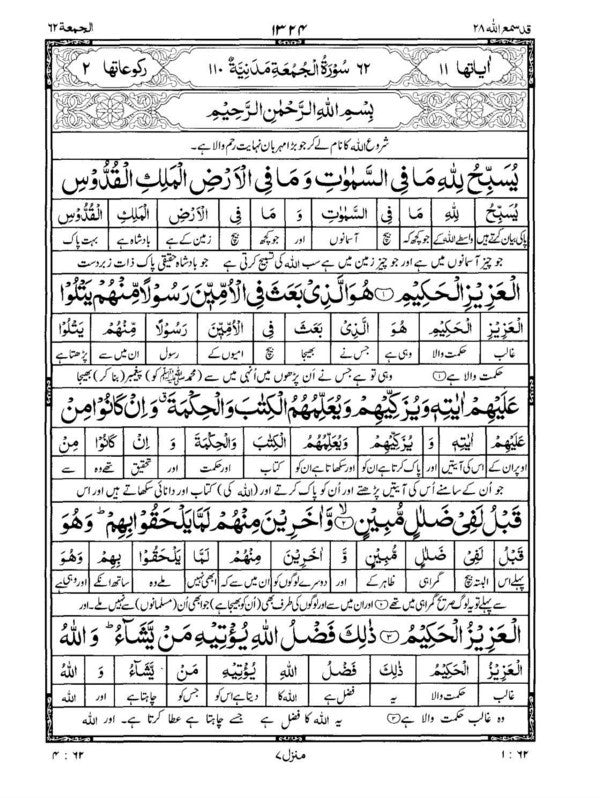 قد سمع الله ۲۸ ۱۳۲۴ الجمعة ۶۲
اٰیاتها ۱۱ ۶۲ سُوْرَةُ الْجُمُعَةِ مَدَنِيَّةٌ ۱۱۰ رکوعاتها ۲
بِسْمِ اللهِ الرَّحْمٰنِ الرَّحِيْمِ
شروع اللہ کا نام لے کر جو بڑا مہربان نہایت رحم والا ہے۔
يُسَبِّحُ لِلّٰهِ مَا فِى السَّمٰوٰتِ وَ مَا فِى الْاَرْضِ الْمَلِكِ الْقُدُّوْسِ
يُسَبِّحُ لِلّٰهِ مَا فِى السَّمٰوٰتِ وَ مَا فِى الْاَرْضِ الْمَلِكِ الْقُدُّوْسِ
پاکی بیان کرتے ہیں واسطے اللہ کے جو کچھ کہ بیچ آسمانوں اور جو کچھ بیچ زمین کے ہے بادشاہ ہے بہت پاک
جو چیز آسمانوں میں ہے اور جو چیز زمین میں ہے سب اللہ کی تسبیح کرتی ہے جو بادشاہ حقیقی پاک ذات زبردست
الْعَزِيْزِ الْحَكِيْمِ ۝۱ هُوَ الَّذِىْ بَعَثَ فِى الْاُمِّيّٖنَ رَسُوْلًا مِّنْهُمْ يَتْلُوْا
الْعَزِيْزِ الْحَكِيْمِ هُوَ الَّذِىْ بَعَثَ فِى الْاُمِّيّٖنَ رَسُوْلًا مِّنْهُمْ يَتْلُوْا
غالب حکمت والا وہی ہے جس نے بھیجا بیچ امیوں کے رسول ان میں سے پڑھتا ہے
حکمت والا ہے ۝۱ وہی تو ہے جس نے اُن پڑھوں میں اُنہی میں سے (محمدﷺ کو) پیغمبر (بنا کر) بھیجا
عَلَيْهِمْ اٰيٰتِهٖ وَيُزَكِّيْهِمْ وَيُعَلِّمُهُمُ الْكِتٰبَ وَالْحِكْمَةَ ۗ وَاِنْ كَانُوْا مِنْ
عَلَيْهِمْ اٰيٰتِهٖ وَ يُزَكِّيْهِمْ وَيُعَلِّمُهُمُ الْكِتٰبَ وَالْحِكْمَةَ وَ اِنْ كَانُوْا مِنْ
اوپر ان کے اس کی آیتیں اور پاک کرتا ہے ان کو اور سکھاتا ہے ان کو کتاب اور حکمت اور تحقیق تھے وہ سے
جو اُن کے سامنے اُس کی آیتیں پڑھتے اور اُن کو پاک کرتے اور (اللہ کی) کتاب اور دانائی سکھاتے ہیں اور اس
قَبْلُ لَفِىْ ضَلٰلٍ مُّبِيْنٍ ۝۲ وَّاٰخَرِيْنَ مِنْهُمْ لَمَّا يَلْحَقُوْا بِهِمْ ۗ وَهُوَ
قَبْلُ لَفِىْ ضَلٰلٍ مُّبِيْنٍ وَّ اٰخَرِيْنَ مِنْهُمْ لَمَّا يَلْحَقُوْا بِهِمْ وَهُوَ
پہلے اس البتہ بیچ گمراہی ظاہر کے اور دوسرے لوگوں کو ان میں سے کہ ابھی نہیں ملے وہ ساتھ انکے اور وہی ہے
سے پہلے تو یہ لوگ صریح گمراہی میں تھے ۝۲ اور ان میں سے اور لوگوں کی طرف بھی (اُن کو بھیجا ہے) جو ابھی اُن (مسلمانوں) سے نہیں ملے۔ اور
الْعَزِيْزُ الْحَكِيْمُ ۝۳ ذٰلِكَ فَضْلُ اللهِ يُؤْتِيْهِ مَنْ يَّشَآءُ ۗ وَاللهُ
الْعَزِيْزُ الْحَكِيْمُ ذٰلِكَ فَضْلُ اللهِ يُؤْتِيْهِ مَنْ يَّشَآءُ وَ اللهُ
غالب حکمت والا یہ فضل ہے اللہ کا دیتا ہے اس کو جس کو چاہتا ہے اور اللہ
وہ غالب حکمت والا ہے ۝۳ یہ اللہ کا فضل ہے جسے چاہتا ہے عطا کرتا ہے۔ اور اللہ
۱ : ۶۲ منزل ۷ ۴ : ۶۲